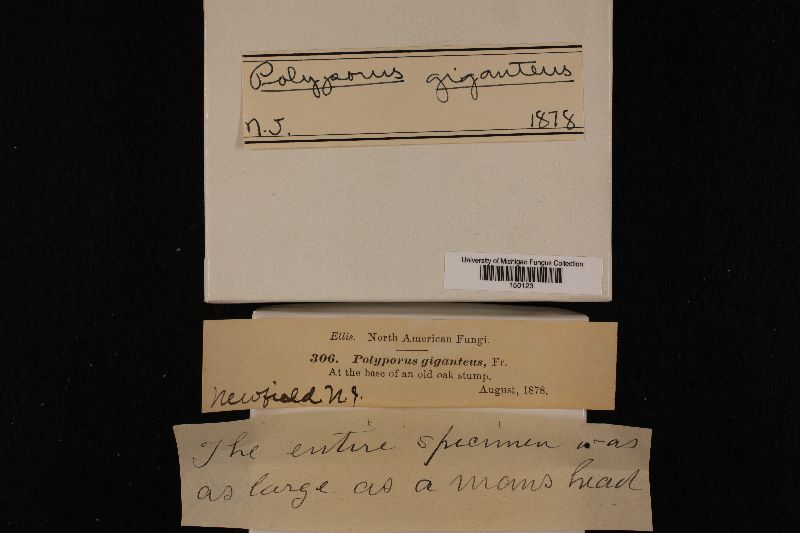 Polyporus giganteus
N.J. 1878
University of Michigan Fungus Collection
160123
Ellis. North American Fungi.
306. Polyporus giganteus, Fr.
At the base of an old oak stump.
August, 1878.
Newfield N.J.
The entire specimen was
as large as a mans head